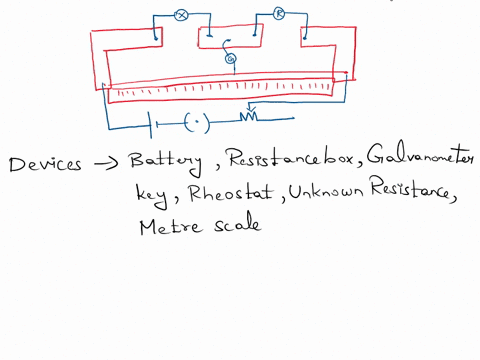 X
R
G
Devices → Battery, Resistancebox, Galvanometer
key, Rheostat, Unknown Resistance,
Metre scale